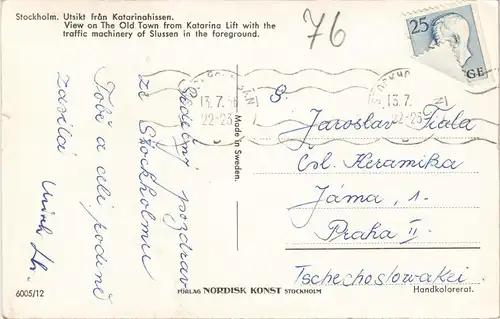 Stockholm. Utsikt från Katarinahissen.
View on The Old Town from Katarina Lift with the
traffic machinery of Slussen in the foreground.
76
25
GE
13.7.
22-23
13.7.
22-23
Srdečný pozdrav
ze Stockholmu
Tobě a celé rodině
zasílá
Made in Sweden.
S.
Jaroslav Fiala
Čsl. Keramika
Jáma, 1.
Praha II
Tschechoslowakei
6005/12
FÖRLAG NORDISK KONST STOCKHOLM
Handkolorerat.